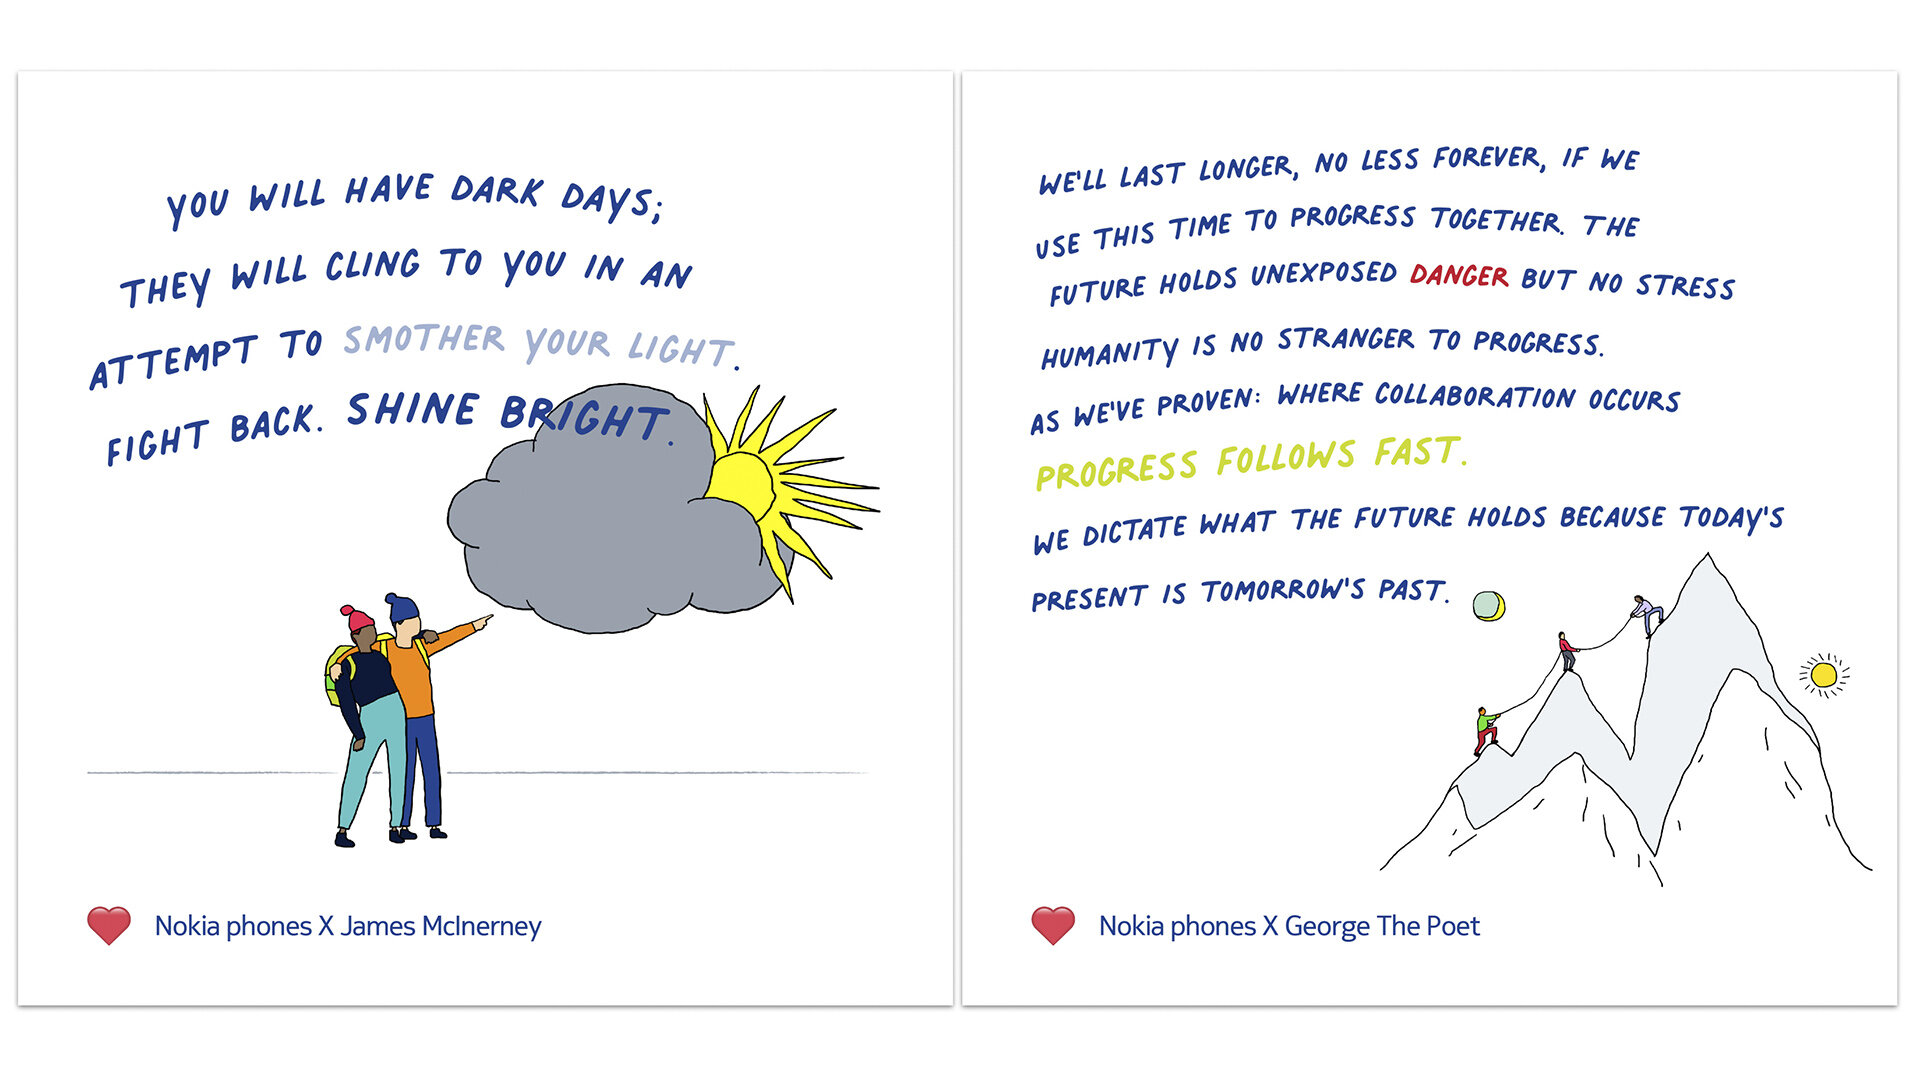 YOU WILL HAVE DARK DAYS;
THEY WILL CLING TO YOU IN AN
ATTEMPT TO SMOTHER YOUR LIGHT.
FIGHT BACK. SHINE BRIGHT.
Nokia phones X James McInerney
WE'LL LAST LONGER, NO LESS FOREVER, IF WE
USE THIS TIME TO PROGRESS TOGETHER. THE
FUTURE HOLDS UNEXPOSED DANGER BUT NO STRESS
HUMANITY IS NO STRANGER TO PROGRESS.
AS WE'VE PROVEN: WHERE COLLABORATION OCCURS
PROGRESS FOLLOWS FAST.
WE DICTATE WHAT THE FUTURE HOLDS BECAUSE TODAY'S
PRESENT IS TOMORROW'S PAST.
Nokia phones X George The Poet